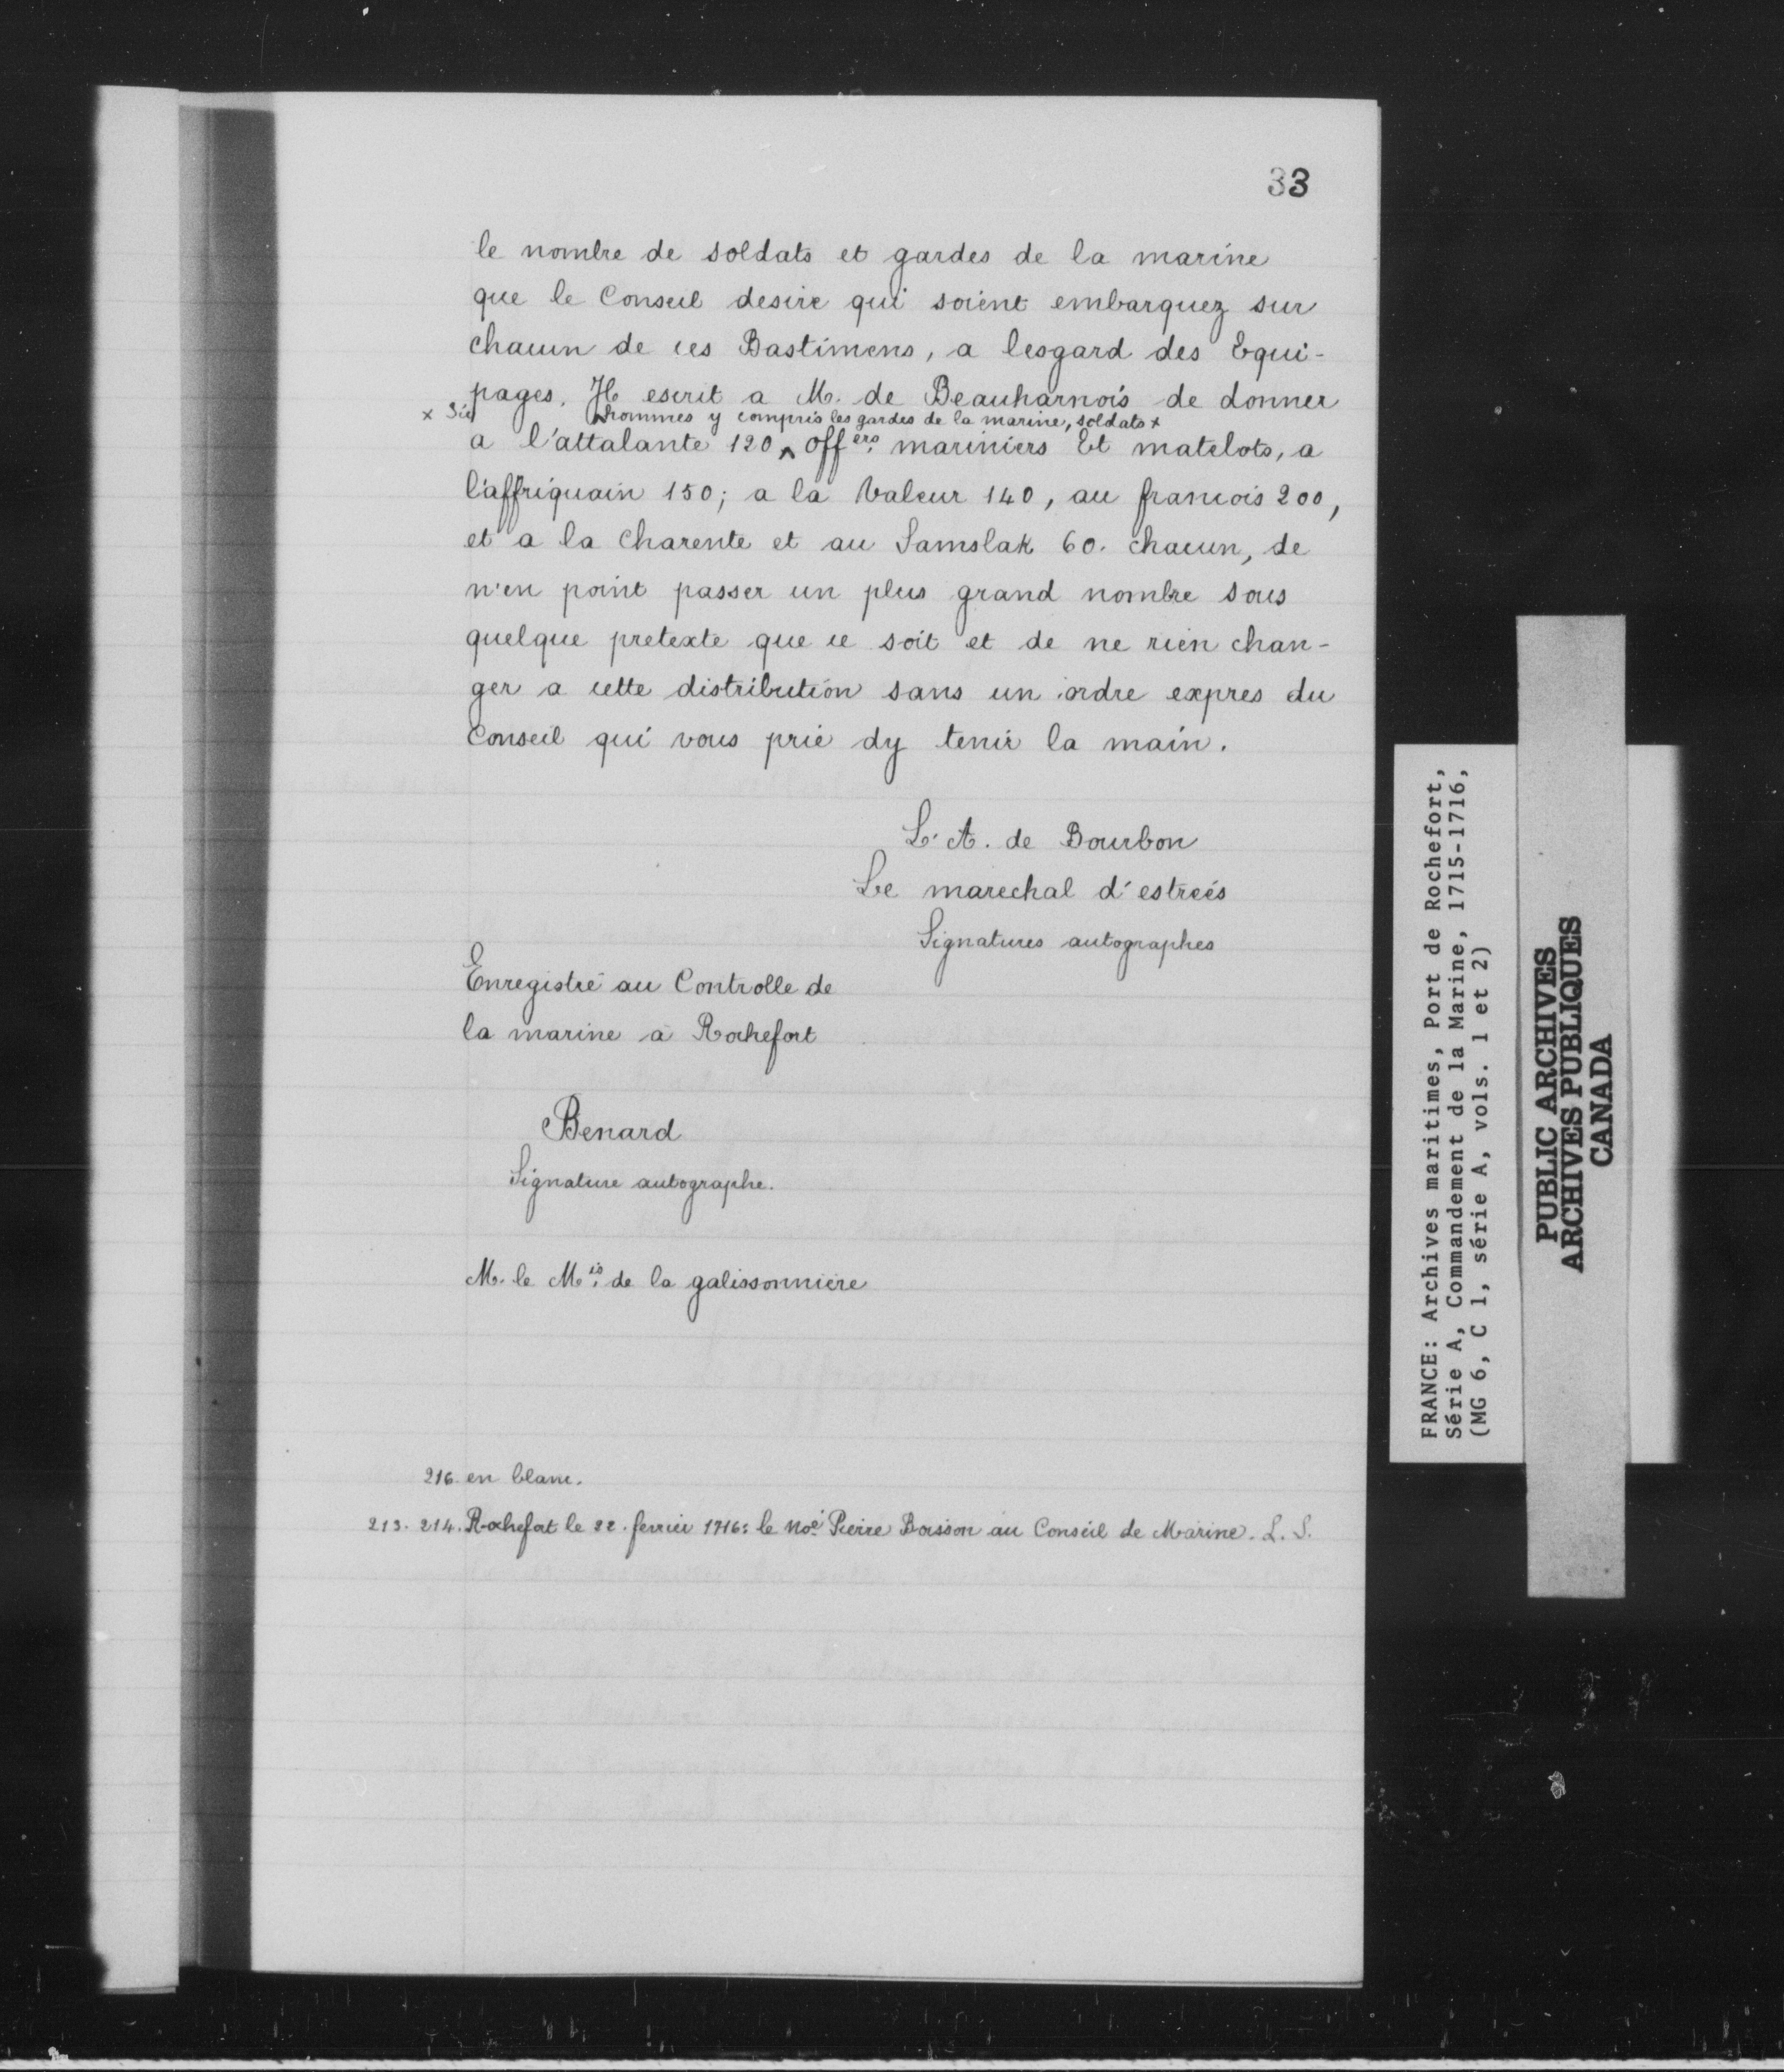 33
le nombre de soldats et gardes de la marine
que le Conseil desire qui soient embarquez sur
chacun de ces Bastimens, a lesgard des Equi-
pages. Il escrit a M. de Beauharnois de donner
x Sic
hommes y compris les gardes de la marine, soldats x
a l'attalante 120 ^ offers. mariniers Et matelots, a
l'affriquain 150; a la Valeur 140, au francois 200,
et a la Charente et au Samslak 60. chacun, de
n'en point passer un plus grand nombre sous
quelque pretexte que ce soit et de ne rien chan-
ger a cette distribution sans un ordre expres du
Conseil qui vous prie dy tenir la main.
L. A. de Bourbon
Le marechal d'estreés
Signatures autographes
Enregistré au Controlle de
la marine a Rochefort
Benard
Signature autographe.
M. le Mis. de la galissonniere
216. en blanc.
213. 214. Rochefort le 22. fevrier 1716: le noé Pierre Boisson au Conseil de Marine. L. S.
FRANCE: Archives maritimes, Port de Rochefort,
Série A, Commandement de la Marine, 1715-1716,
(MG 6, C 1, série A, vols. 1 et 2)
PUBLIC ARCHIVES
ARCHIVES PUBLIQUES
CANADA